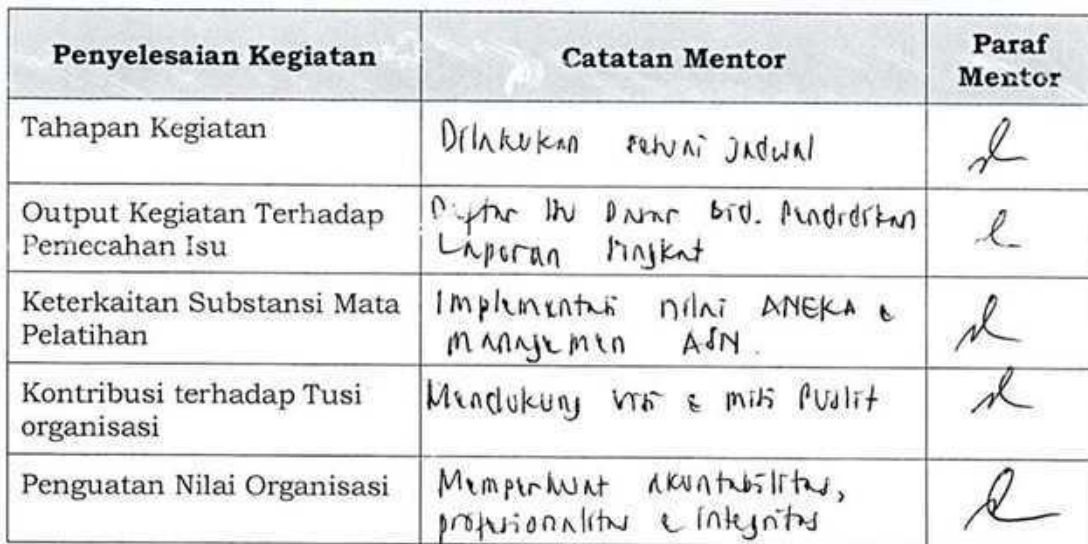 Penyelesaian Kegiatan Catatan Mentor Paraf
Mentor
Tahapan Kegiatan Dilakukan sesuai jadwal
Output Kegiatan Terhadap Daftar Isu Dasar Bid. Pendidikan
Pemecahan Isu Laporan Singkat
Keterkaitan Substansi Mata Implementasi nilai ANEKA &
Pelatihan manajemen ASN.
Kontribusi terhadap Tusi Mendukung visi & misi Puslit
organisasi
Penguatan Nilai Organisasi Memperkuat akuntabilitas,
profesionalitas & integritas